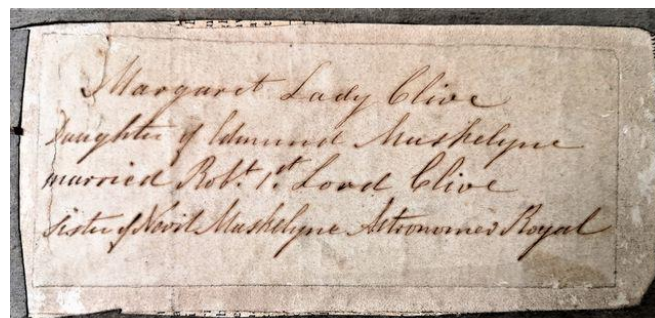 Margaret Lady Clive
Daughter of Edmund Maskelyne
married Robt. 1st. Lord Clive
Sister of Nevil Maskelyne Astronomer Royal